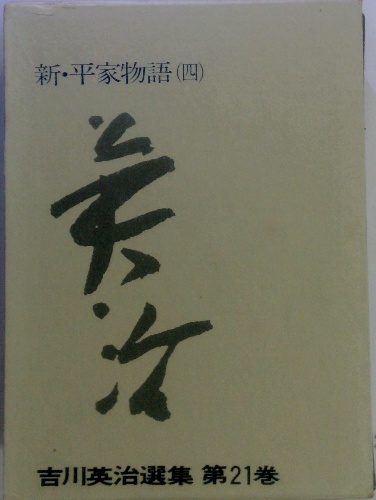 新・平家物語(四)
英治
吉川英治選集 第21巻